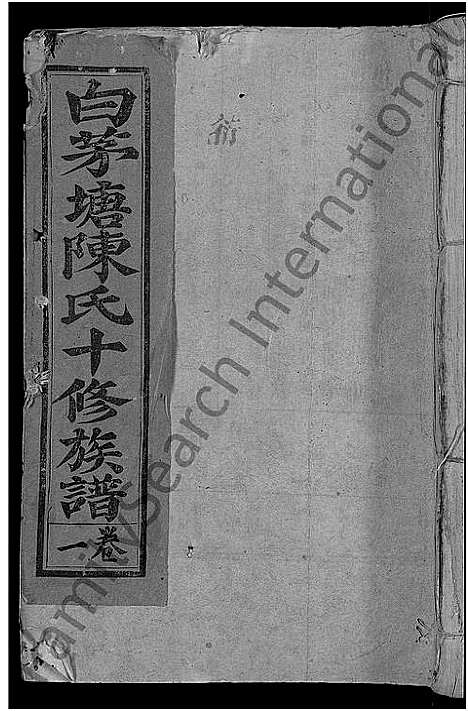 白茅塘陳氏十修族譜
卷一
FamilySearch International